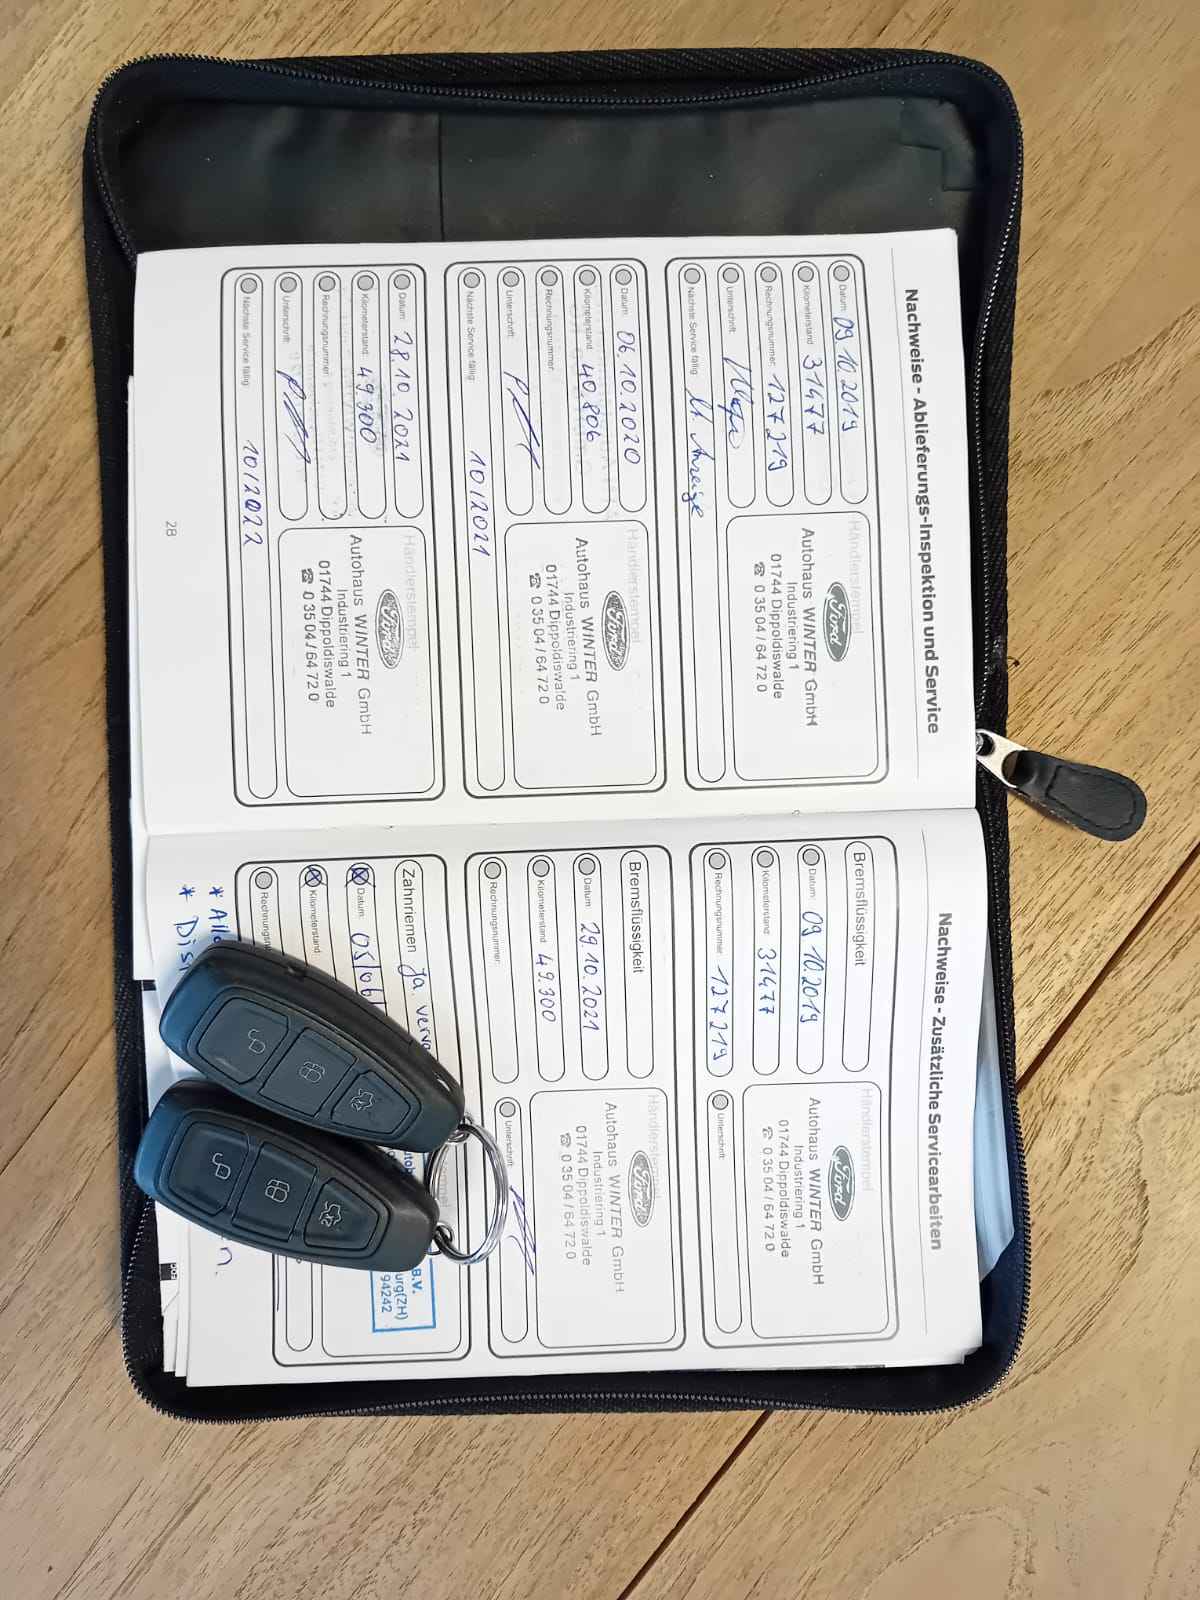 Nachweise - Ablieferungs-Inspektion und Service
Datum: 09 10 2019
Kilometerstand: 31477
Rechnungsnummer: 127219
Unterschrift:
Nächste Service fällig: lt. Anzeige
Händlerstempel
Ford
Autohaus WINTER GmbH
Industriering 1
01744 Dippoldiswalde
☎ 0 35 04 / 64 72 0
Datum: 06.10.2020
Kilometerstand: 40.806
Rechnungsnummer:
Unterschrift:
Nächste Service fällig: 10/2021
Händlerstempel
Ford
Autohaus WINTER GmbH
Industriering 1
01744 Dippoldiswalde
☎ 0 35 04 / 64 72 0
Datum: 28.10.2021
Kilometerstand: 49.300
Rechnungsnummer:
Unterschrift:
Nächste Service fällig: 10/2022
Händlerstempel
Ford
Autohaus WINTER GmbH
Industriering 1
01744 Dippoldiswalde
☎ 0 35 04 / 64 72 0
28
Nachweise - Zusätzliche Servicearbeiten
Bremsflüssigkeit
Datum: 09 10.2019
Kilometerstand: 31477
Rechnungsnummer: 127219
Unterschrift:
Händlerstempel
Ford
Autohaus WINTER GmbH
Industriering 1
01744 Dippoldiswalde
☎ 0 35 04 / 64 72 0
Bremsflüssigkeit
Datum: 29.10.2021
Kilometerstand: 49.300
Rechnungsnummer:
Unterschrift:
Händlerstempel
Ford
Autohaus WINTER GmbH
Industriering 1
01744 Dippoldiswalde
☎ 0 35 04 / 64 72 0
Zahnriemen Ja
Datum: 05/06/
Kilometerstand
Rechnungsnum
B.V.
urg(ZH)
94242
2x
2x